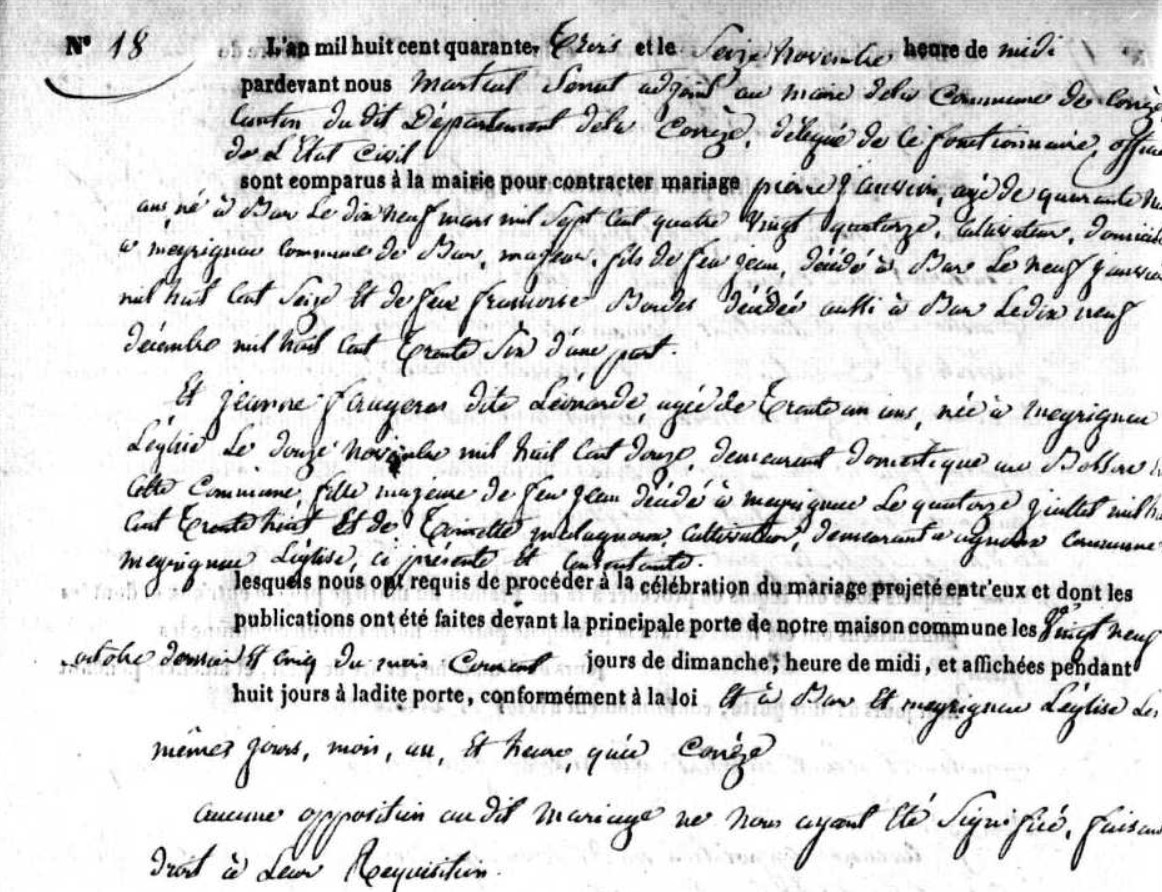 N° 18 L'an mil huit cent quarante- Trois et le Seize Novembre heure de midi
pardevant nous Martial adjoint au maire de la Commune de Corrèze
Canton du dit Département de la Corrèze, délégué de ce fonctionnaire, officier
de L'État Civil
sont comparus à la mairie pour contracter mariage pierre jaussein, agé de quarante
ans, né à Bar Le dix neuf mars mil Sept Cent quatre Vingt quatorze, Cultivateur, domicilié
à meyrignac Commune de Bar, majeur, fils de feu jean, décédé à Bar Le neuf janvier
mil huit Cent Seize Et de feue françoise décédée aussi à Bar Le dix neuf
décembre mil huit Cent Trente Six d'une part.
Et jeanne faugeras dite Léonarde, agée de Trente un ans, née à meyrignac
Léglise Le douze Novembre mil huit Cent douze, demeurant domestique au
Cette Commune, fille majeure de feu jean décédé à meyrignac Le quatorze juillet mil
Cent Trente huit Et de Toinette Cultivatrice, demeurant à Commune
meyrignac Léglise, ci présente Et Consentante.
lesquels nous ont requis de procéder à la célébration du mariage projeté entr'eux et dont les
publications ont été faites devant la principale porte de notre maison commune les Vingt neuf
octobre dernier Et cinq du mois Courant jours de dimanche, heure de midi, et affichées pendant
huit jours à ladite porte, conformément à la loi Et à Bar Et meyrignac Léglise Les
mêmes jours, mois, an, Et heure, qu'à Corrèze
aucune opposition au dit mariage ne Nous ayant Été Signifiée, faisant
droit à Leur Réquisition.